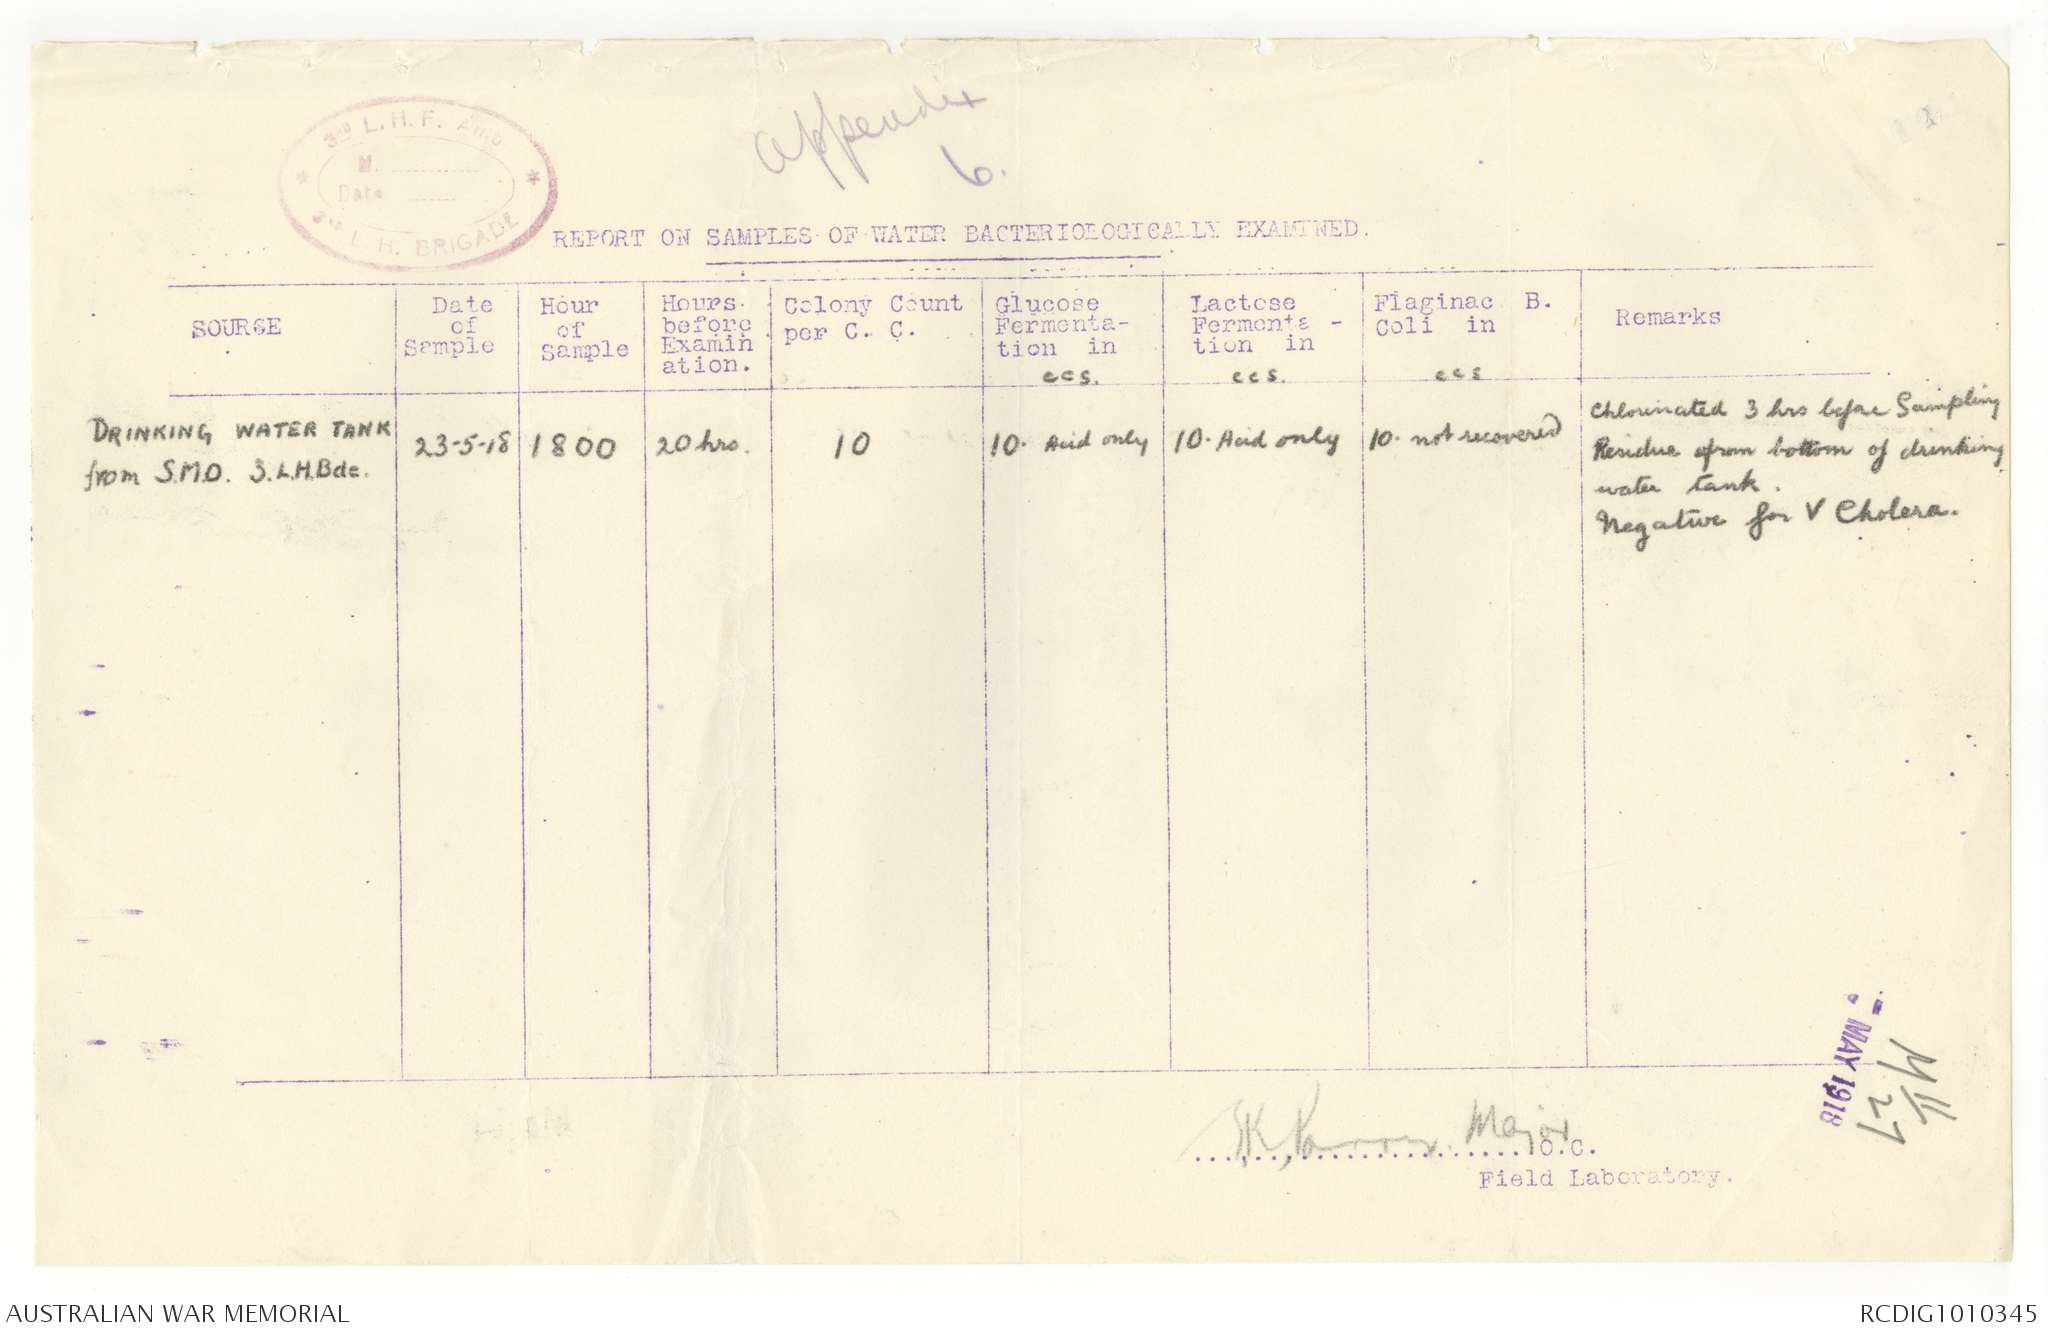 3rd L.H.F. Amb
M.
Date
3rd L. H. BRIGADE
appendix
6.
REPORT ON SAMPLES OF WATER BACTERIOLOGICALLY EXAMINED.
SOURCE
Date
of
Sample
Hour
of
Sample
Hours
before
Examin
ation.
Colony Count
per C. C.
Glucose
Fermenta-
tion in
ccs.
Lactose
Fermenta -
tion in
ccs.
Flaginac B.
Coli in
ccs
Remarks
DRINKING WATER TANK
from S.M.O. 3.L.H.Bde.
23-5-18
1800
20 hrs.
10
10. Acid only
10. Acid only
10. not recovered
Chlorinated 3 hrs before Sampling
Residue from bottom of drinking
water tank.
Negative for V Cholera.
- MAY 1918
27
Major
O.C.
Field Laboratory.
AUSTRALIAN WAR MEMORIAL
RCDIG1010345